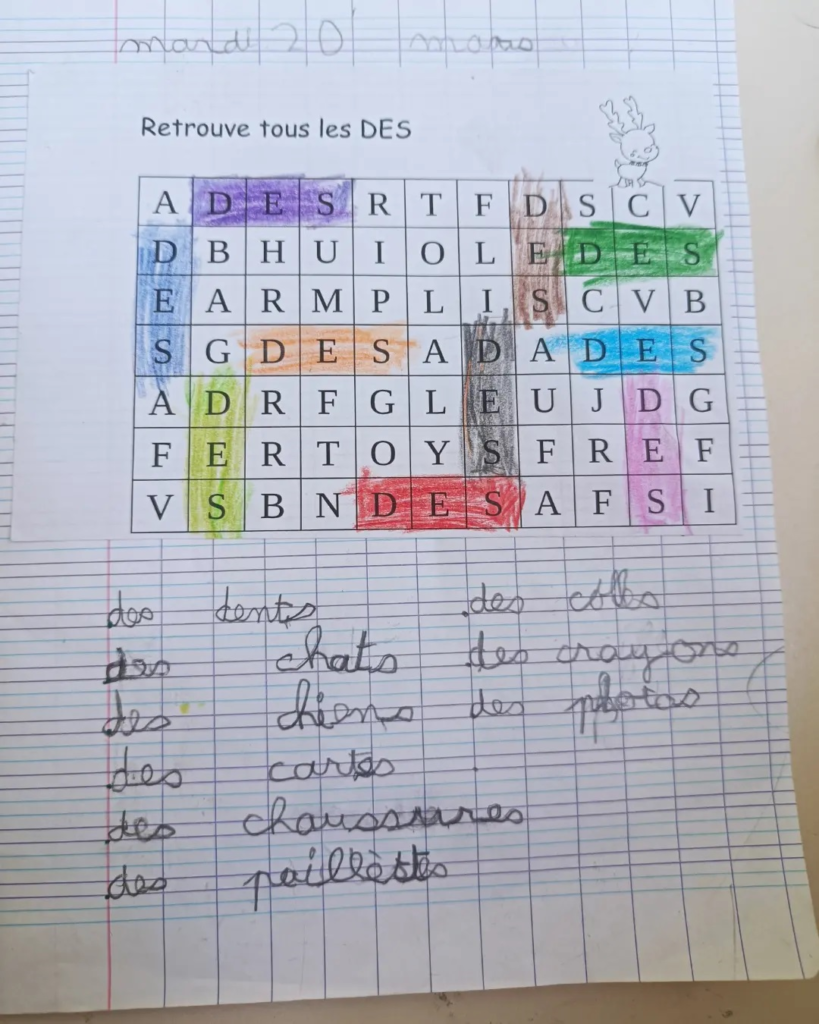 mardi 20 mars
Retrouve tous les DES
A D E S R T F D S C V
D B H U I O L E D E S
E A R M P L I S C V B
S G D E S A D A D E S
A D R F G L E U J D G
F E R T O Y S F R E F
V S B N D E S A F S I
des dents des colles
des chats des crayons
des chiens des photos
des cartes
des chaussures
des paillètes